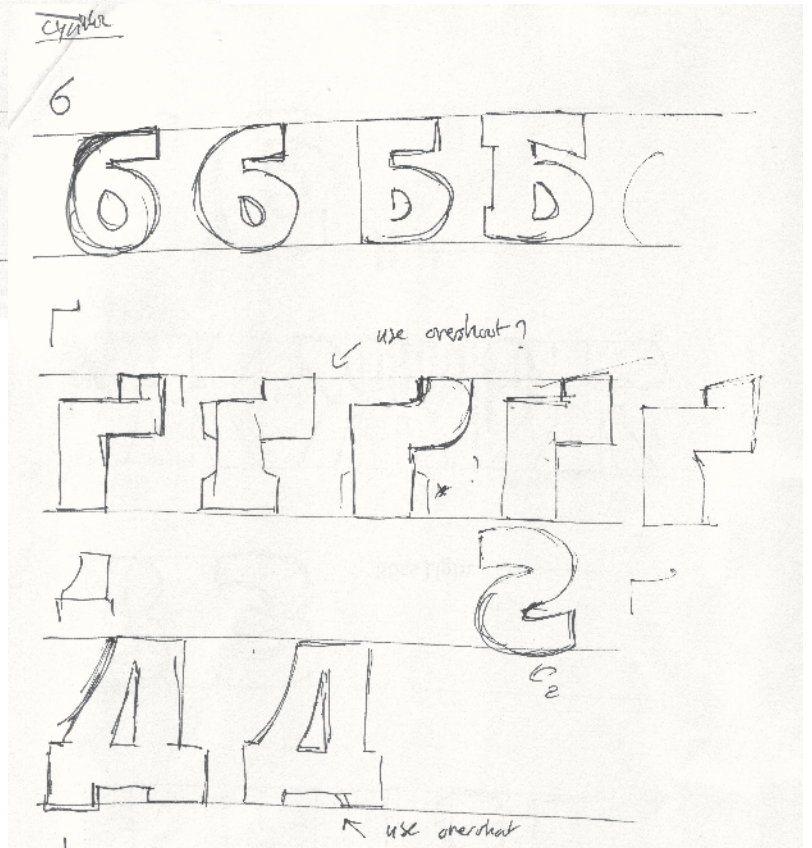 б
б б Б Б
Г
use overshoot?
Г Г Г Г Г
Д
Д Д
use overshoot